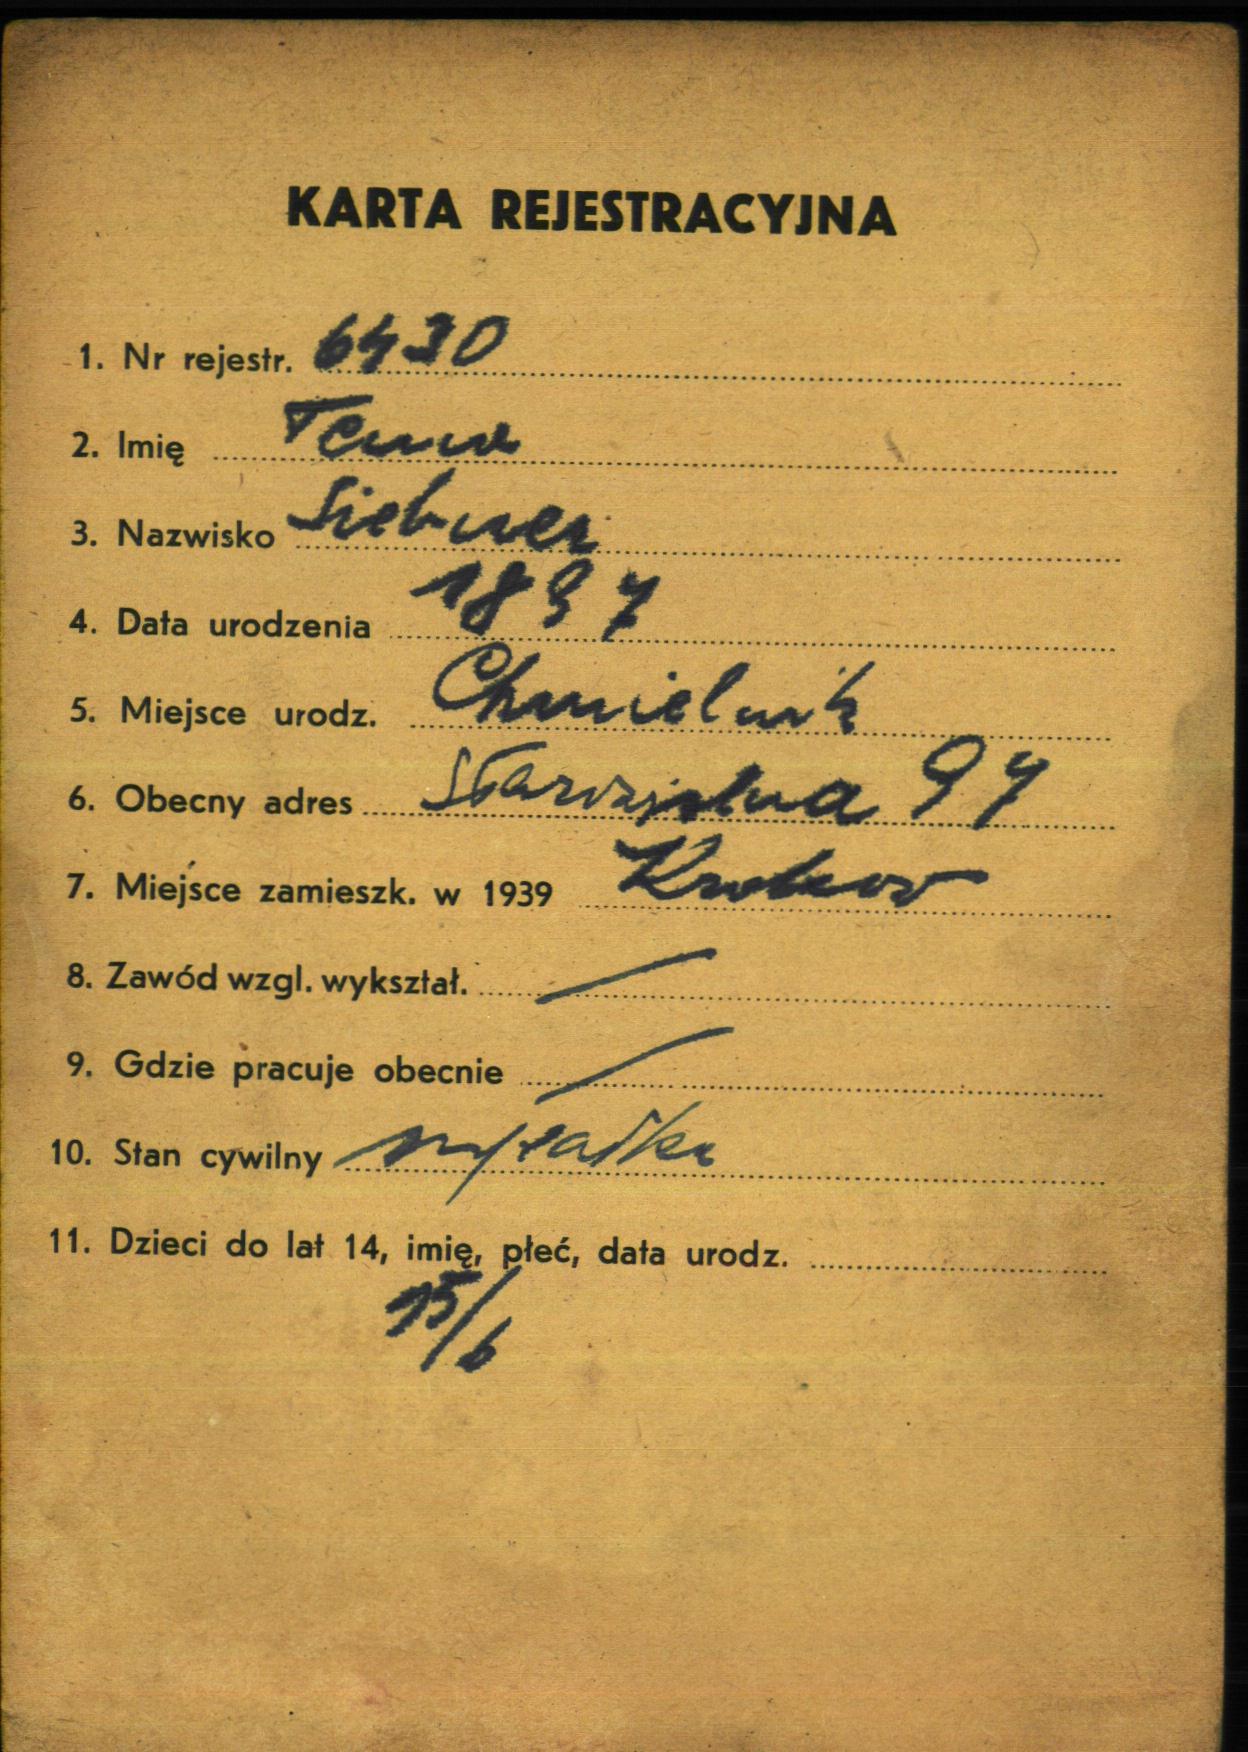 KARTA REJESTRACYJNA
1. Nr rejestr. 6430
2. Imię
3. Nazwisko Siebner
4. Data urodzenia 1897
5. Miejsce urodz. Chmielnik
6. Obecny adres 97
7. Miejsce zamieszk. w 1939 Krakow
8. Zawód wzgl. wykształ. /
9. Gdzie pracuje obecnie /
10. Stan cywilny
11. Dzieci do lat 14, imię, płeć, data urodz.
15/6